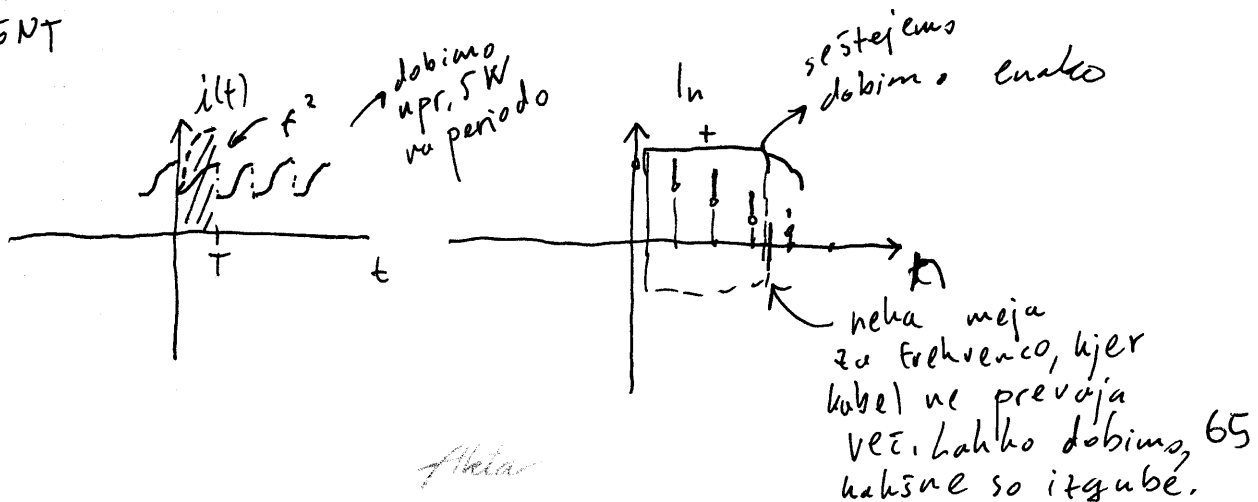 i(t)
f²
dobimo
npr. 5W
na periodo
T
t
In
+
seštejemo
dobimo enako
n
neka meja
za frekvenco, kjer
kabel ne prevaja
več. Lahko dobimo,
kakšne so izgube.
65